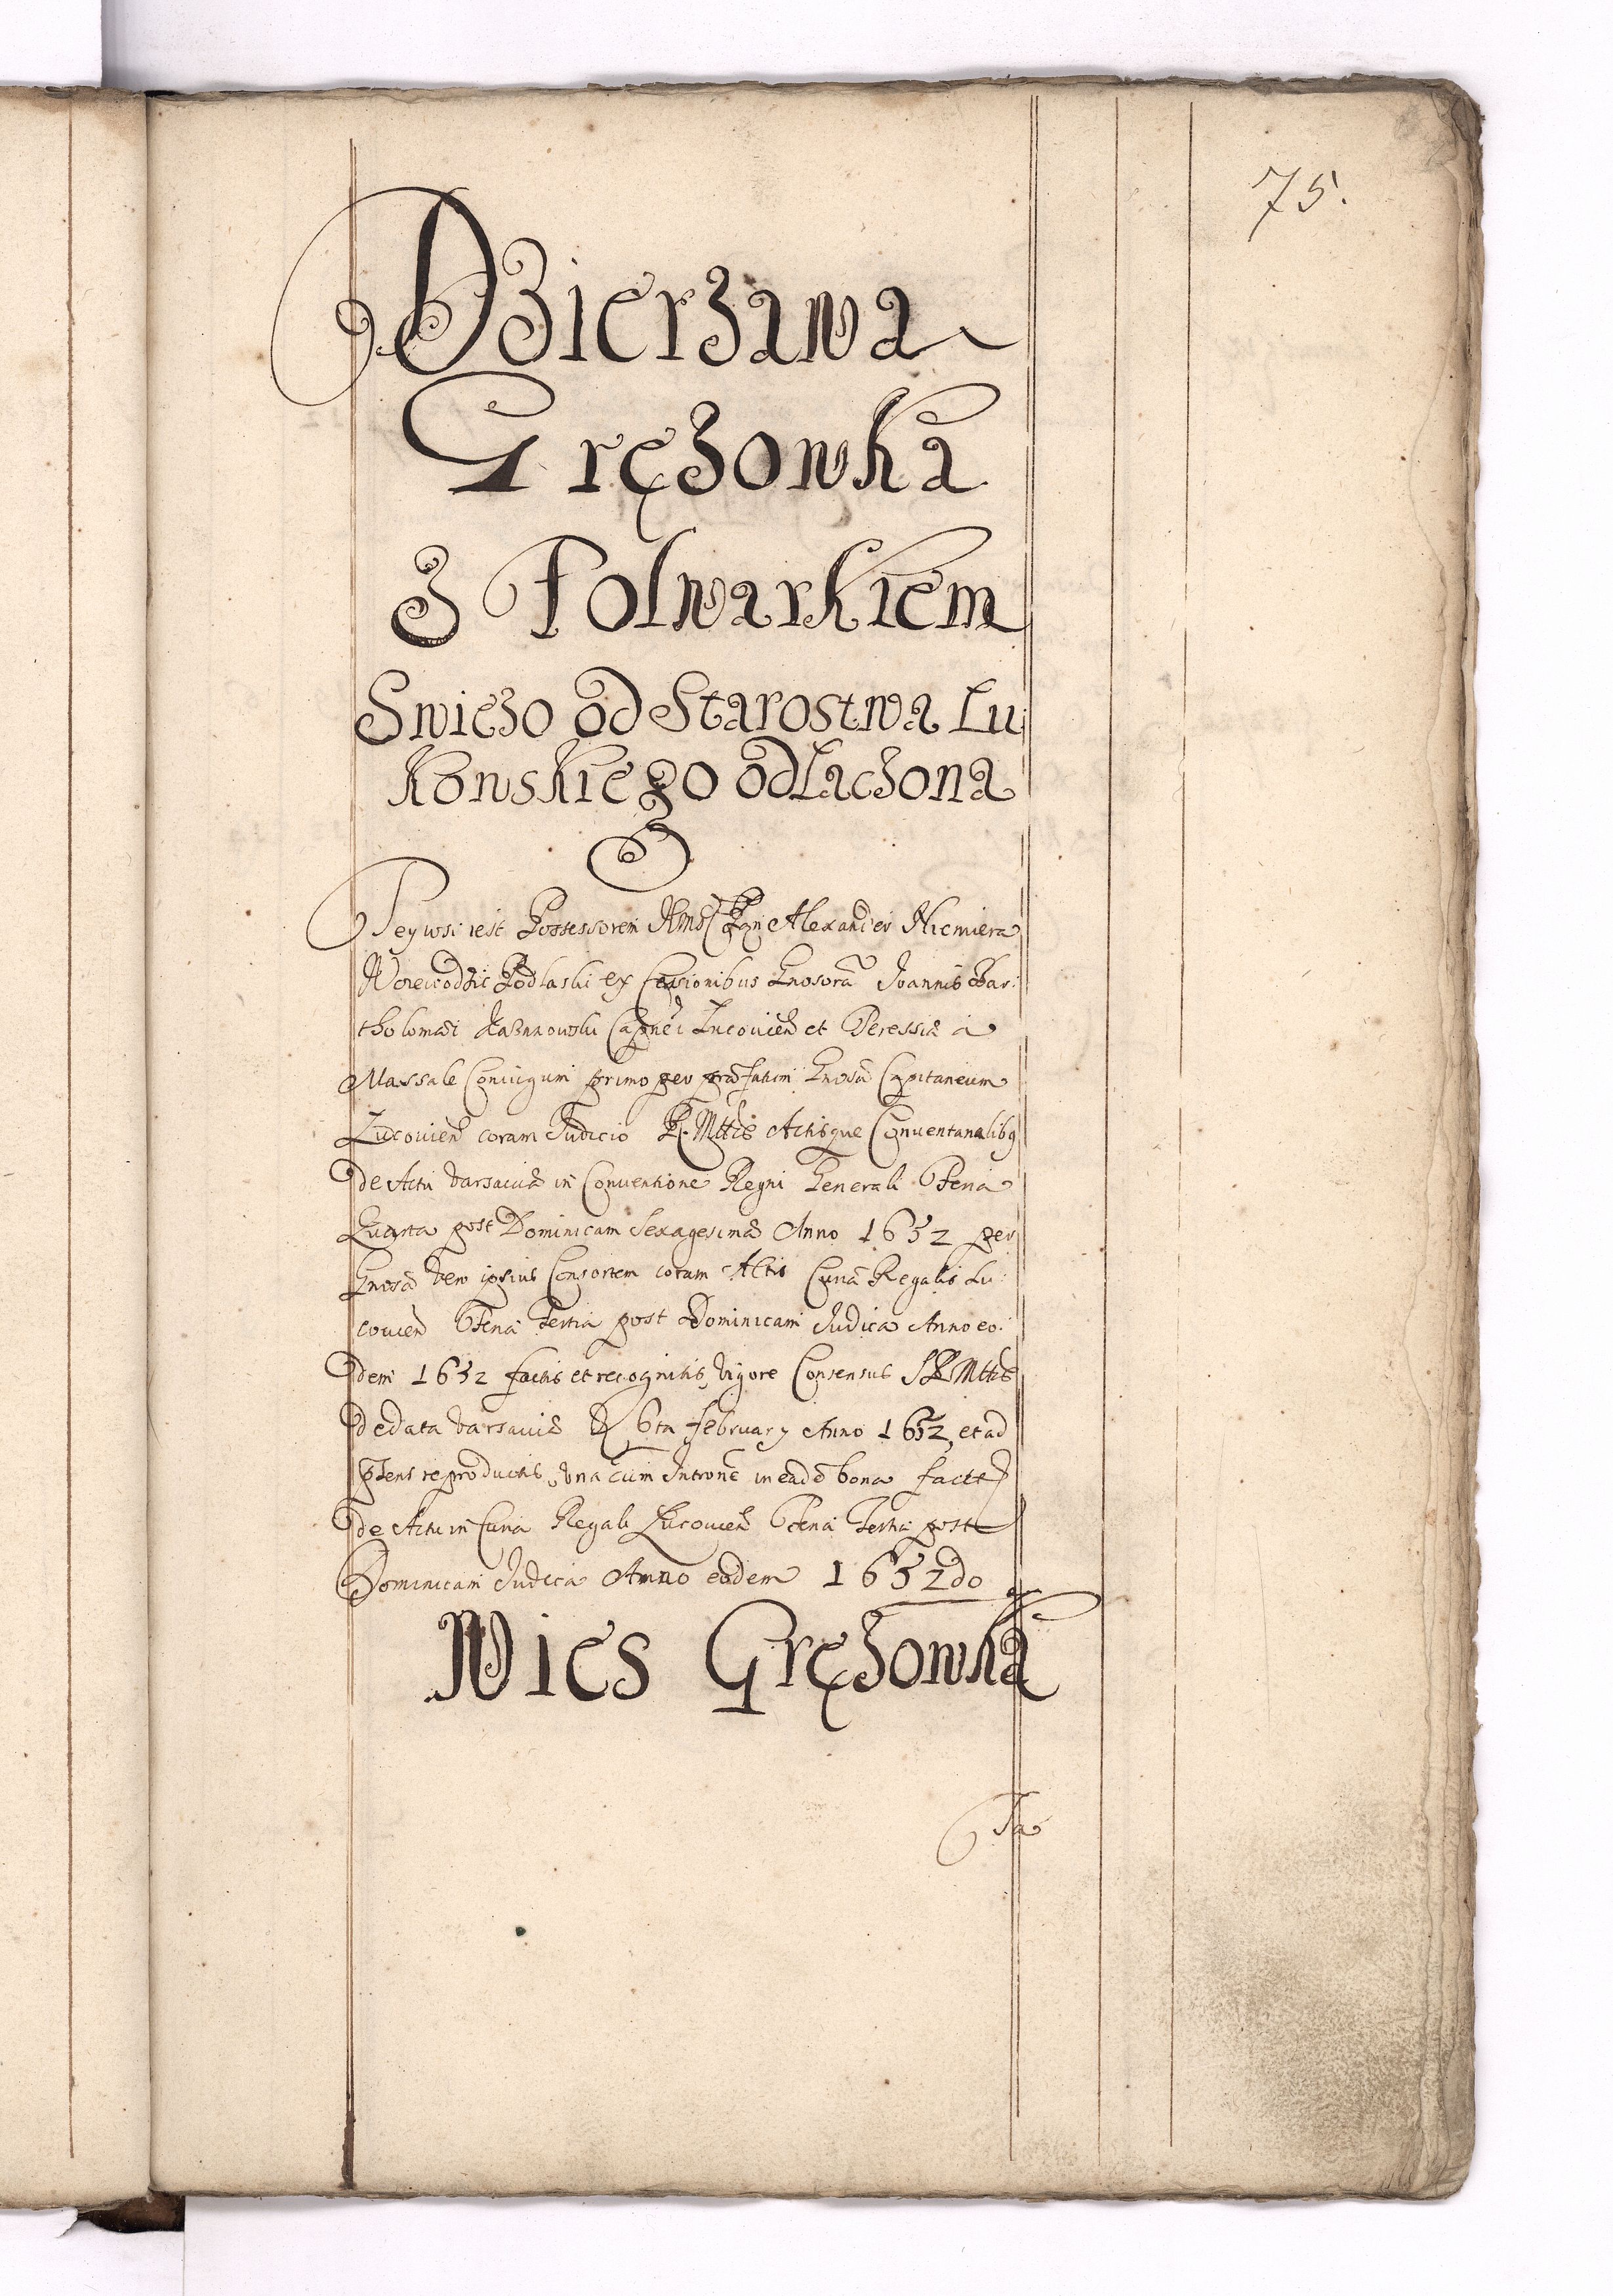 75.
Dzierzawa
Gręzowka
z Folwarkiem
Swiezo od Starostwa Lu
kowskiego odłaczona
Tey wsi iest Possessorem Jmsc Pan Alexander Niemiera
Woiewodzic Podlaski ex Cessionibus Gnosorū Joannis Bar:
tholomæi Kazanowski Capnei Lucovien et Peressiæ a
Massale Coniugum primo per præfatum Gnosū Capitaneum
Lucovien coram Judicio R. Mttis Actisque Conventionalibq
de Actu Varsaviæ in Conventione Regni Generali Feria
Quarta post Dominicam Sexagesimæ Anno 1652 per
Gnosā vero ipsius Consortem coram Actis Curiæ Regalis Lu:
covien Feria Tertia post Dominicam Judica Anno eo:
dem 1652 factis et recognitis, vigore Consensus S R Mttis
de data Varsaviæ D 6ta february Anno 1652, et ad
pñens reproductis, una cum Introne in eadē bona facta
de Actu in Curia Regali Lucovien Feria Tertia post
Dominicam Judica Anno eodem 1652do
Wies Gręzowka
Ta